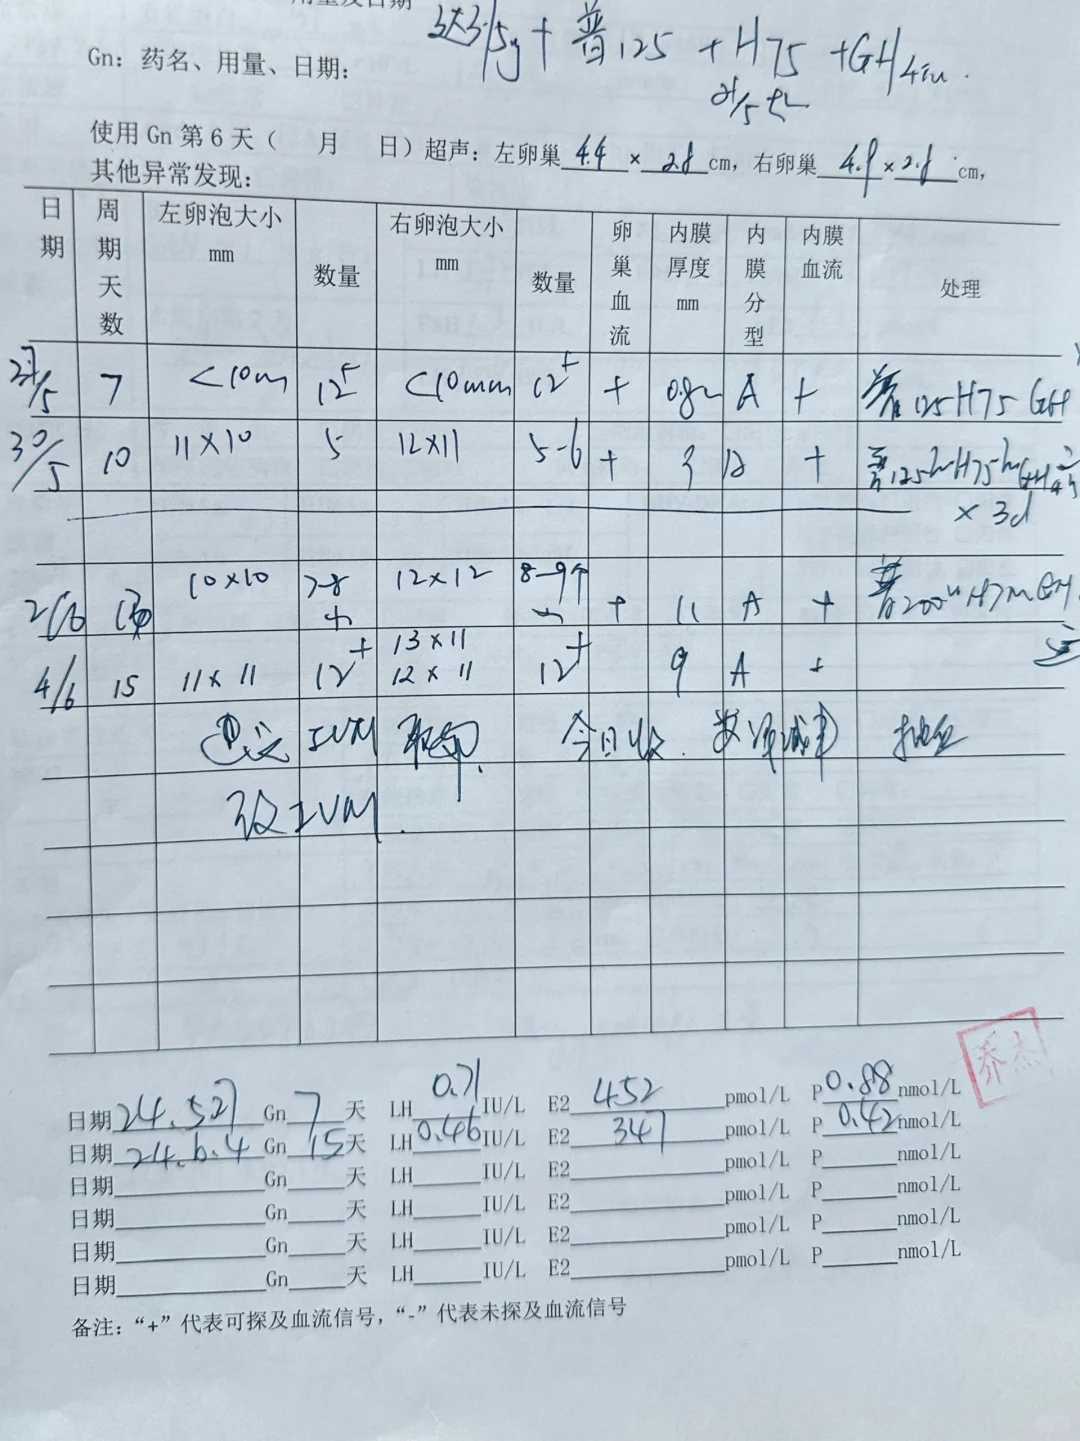 用量及日期
达3.75g + 普125 + H75 + GH4iu.
Gn：药名、用量、日期：
21/5
使用 Gn 第 6 天（ 月 日）超声：左卵巢 4.4 × 2.8 cm，右卵巢 4.9 × 2.8 cm，
其他异常发现：
日期 周期天数 左卵泡大小 mm 数量 右卵泡大小 mm 数量 卵巢血流 内膜厚度 mm 内膜分型 内膜血流 处理
27/5 7 <10mm 12+ <10mm 12+ + 0.8 A + 普125 H75 GH
30/5 10 11×10 5 12×11 5-6 + A + 普125 H75 GH
× 3d
2/6 13 10×10 7-8 12×12 8-9个 + 11 A + 普200 H75 GH
13×11
4/6 15 11×11 12+ 12×11 12+ 9 A +
建议 IVM 取卵. 今日 抽血
改IVM.
乔杰
日期 24.527 Gn 7 天 LH 0.71 IU/L E2 452 pmol/L P 0.88 nmol/L
日期 24.6.4 Gn 15 天 LH 0.46 IU/L E2 347 pmol/L P 0.42 nmol/L
日期 Gn 天 LH IU/L E2 pmol/L P nmol/L
日期 Gn 天 LH IU/L E2 pmol/L P nmol/L
日期 Gn 天 LH IU/L E2 pmol/L P nmol/L
日期 Gn 天 LH IU/L E2 pmol/L P nmol/L
备注：“+”代表可探及血流信号，“-”代表未探及血流信号